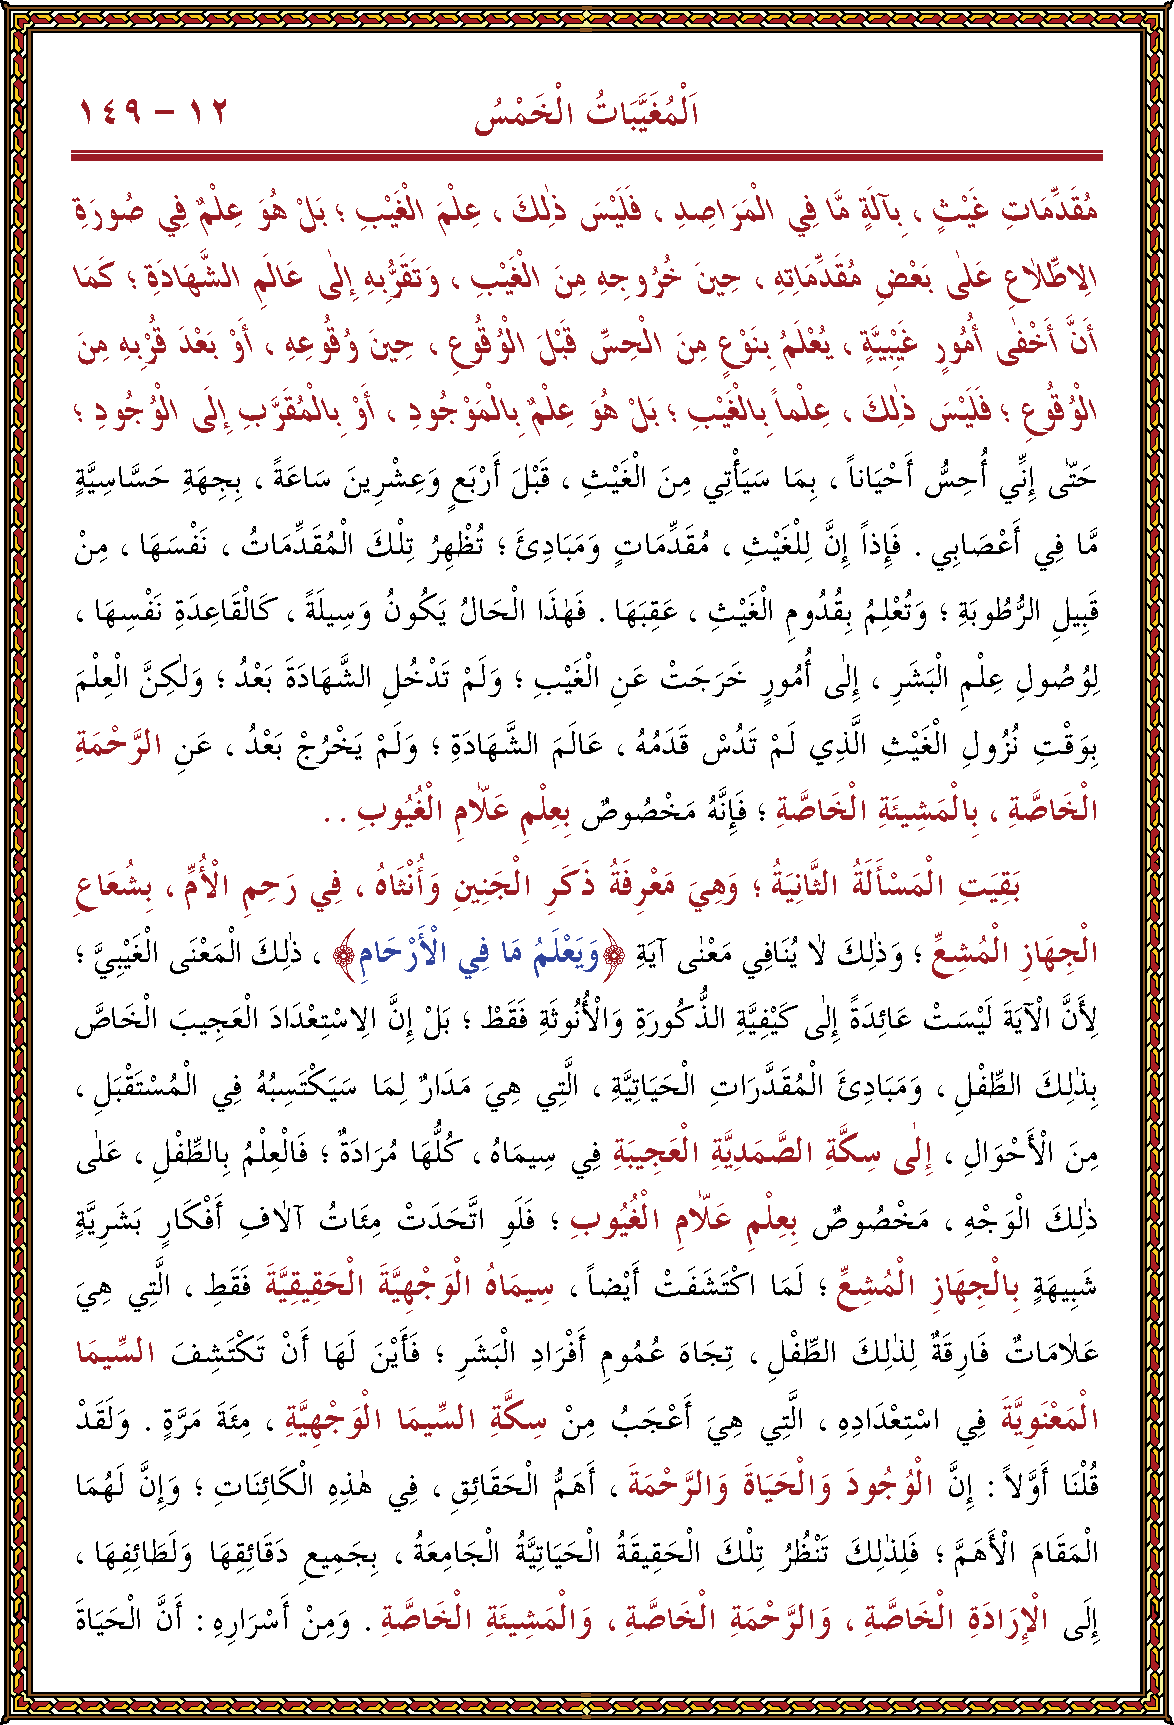 اَلْمُغَيَّبَاتُ الْخَمْسُ ١٢ – ١٤٩
مُقَدِّمَاتِ غَيْثٍ ، بِآلَةٍ مَّا فِي الْمَرَاصِدِ ، فَلَيْسَ ذٰلِكَ ، عِلْمَ الْغَيْبِ ؛ بَلْ هُوَ عِلْمٌ فِي صُورَةِ
الِاطِّلَاعِ عَلٰى بَعْضِ مُقَدِّمَاتِهِ ، حِينَ خُرُوجِهِ مِنَ الْغَيْبِ ، وَتَقَرُّبِهِ إِلٰى عَالَمِ الشَّهَادَةِ ؛ كَمَا
أَنَّ أَخْفٰى أُمُورٍ غَيْبِيَّةٍ ، يُعْلَمُ بِنَوْعٍ مِنَ الْحِسِّ قَبْلَ الْوُقُوعِ ، حِينَ وُقُوعِهِ ، أَوْ بَعْدَ قُرْبِهِ مِنَ
الْوُقُوعِ ؛ فَلَيْسَ ذٰلِكَ ، عِلْماً بِالْغَيْبِ ؛ بَلْ هُوَ عِلْمٌ بِالْمَوْجُودِ ، أَوْ بِالْمُقَرَّبِ إِلَى الْوُجُودِ ؛
حَتّٰى إِنِّي أُحِسُّ أَحْيَاناً ، بِمَا سَيَأْتِي مِنَ الْغَيْثِ ، قَبْلَ أَرْبَعٍ وَعِشْرِينَ سَاعَةً ، بِجِهَةِ حَسَّاسِيَّةٍ
مَّا فِي أَعْصَابِي . فَإِذاً إِنَّ لِلْغَيْثِ ، مُقَدِّمَاتٍ وَمَبَادِئَ ؛ تُظْهِرُ تِلْكَ الْمُقَدِّمَاتُ ، نَفْسَهَا ، مِنْ
قَبِيلِ الرُّطُوبَةِ ؛ وَتُعْلِمُ بِقُدُومِ الْغَيْثِ ، عَقِبَهَا . فَهٰذَا الْحَالُ يَكُونُ وَسِيلَةً ، كَالْقَاعِدَةِ نَفْسِهَا ،
لِوُصُولِ عِلْمِ الْبَشَرِ ، إِلٰى أُمُورٍ خَرَجَتْ عَنِ الْغَيْبِ ؛ وَلَمْ تَدْخُلِ الشَّهَادَةَ بَعْدُ ؛ وَلٰكِنَّ الْعِلْمَ
بِوَقْتِ نُزُولِ الْغَيْثِ الَّذِي لَمْ تَدُسْ قَدَمُهُ ، عَالَمَ الشَّهَادَةِ ؛ وَلَمْ يَخْرُجْ بَعْدُ ، عَنِ الرَّحْمَةِ
الْخَاصَّةِ ، بِالْمَشِيئَةِ الْخَاصَّةِ ؛ فَإِنَّهُ مَخْصُوصٌ بِعِلْمِ عَلَّامِ الْغُيُوبِ . .
بَقِيَتِ الْمَسْأَلَةُ الثَّانِيَةُ ؛ وَهِيَ مَعْرِفَةُ ذَكَرِ الْجَنِينِ وَأُنْثَاهُ ، فِي رَحِمِ الْأُمِّ ، بِشُعَاعِ
الْجِهَازِ الْمُشِعِّ ؛ وَذٰلِكَ لَا يُنَافِي مَعْنٰى آيَةِ ﴿وَيَعْلَمُ مَا فِي الْأَرْحَامِ﴾ ، ذٰلِكَ الْمَعْنَى الْغَيْبِيَّ ؛
لِأَنَّ الْآيَةَ لَيْسَتْ عَائِدَةً إِلٰى كَيْفِيَّةِ الذُّكُورَةِ وَالْأُنُوثَةِ فَقَطْ ؛ بَلْ إِنَّ الِاسْتِعْدَادَ الْعَجِيبَ الْخَاصَّ
بِذٰلِكَ الطِّفْلِ ، وَمَبَادِئَ الْمُقَدَّرَاتِ الْحَيَاتِيَّةِ ، الَّتِي هِيَ مَدَارٌ لِمَا سَيَكْتَسِبُهُ فِي الْمُسْتَقْبَلِ ،
مِنَ الْأَحْوَالِ ، إِلٰى سِكَّةِ الصَّمَدِيَّةِ الْعَجِيبَةِ فِي سِيمَاهُ ، كُلُّهَا مُرَادَةٌ ؛ فَالْعِلْمُ بِالطِّفْلِ ، عَلٰى
ذٰلِكَ الْوَجْهِ ، مَخْصُوصٌ بِعِلْمِ عَلَّامِ الْغُيُوبِ ؛ فَلَوِ اتَّحَدَتْ مِئَاتُ آلَافِ أَفْكَارٍ بَشَرِيَّةٍ
شَبِيهَةٍ بِالْجِهَازِ الْمُشِعِّ ؛ لَمَا اكْتَشَفَتْ أَيْضاً ، سِيمَاهُ الْوَجْهِيَّةَ الْحَقِيقِيَّةَ فَقَطِ ، الَّتِي هِيَ
عَلَامَاتٌ فَارِقَةٌ لِذٰلِكَ الطِّفْلِ ، تِجَاهَ عُمُومِ أَفْرَادِ الْبَشَرِ ؛ فَأَيْنَ لَهَا أَنْ تَكْتَشِفَ السِّيمَا
الْمَعْنَوِيَّةَ فِي اسْتِعْدَادِهِ ، الَّتِي هِيَ أَعْجَبُ مِنْ سِكَّةِ السِّيمَا الْوَجْهِيَّةِ ، مِئَةَ مَرَّةٍ . وَلَقَدْ
قُلْنَا أَوَّلاً : إِنَّ الْوُجُودَ وَالْحَيَاةَ وَالرَّحْمَةَ ، أَهَمُّ الْحَقَائِقِ ، فِي هٰذِهِ الْكَائِنَاتِ ؛ وَإِنَّ لَهُمَا
الْمَقَامَ الْأَهَمَّ ؛ فَلِذٰلِكَ تَنْظُرُ تِلْكَ الْحَقِيقَةُ الْحَيَاتِيَّةُ الْجَامِعَةُ ، بِجَمِيعِ دَقَائِقِهَا وَلَطَائِفِهَا ،
إِلَى الْإِرَادَةِ الْخَاصَّةِ ، وَالرَّحْمَةِ الْخَاصَّةِ ، وَالْمَشِيئَةِ الْخَاصَّةِ . وَمِنْ أَسْرَارِهِ : أَنَّ الْحَيَاةَ